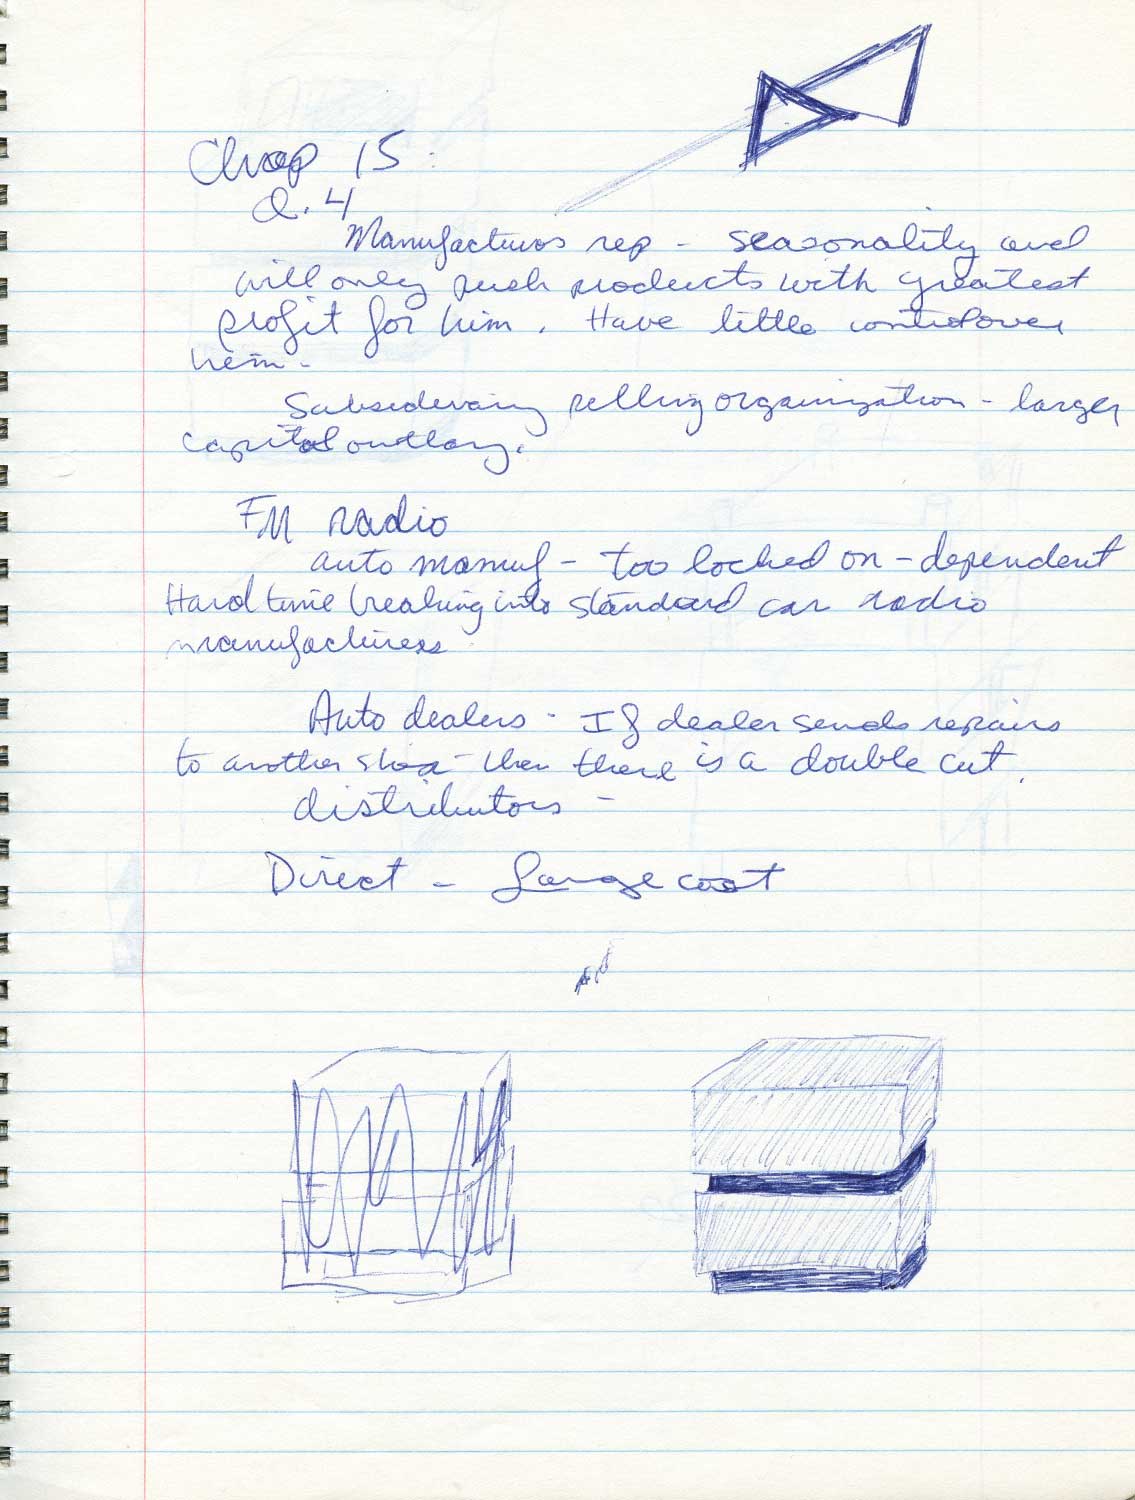 Chap 15:
Q. 4
Manufacturos rep - seasonality and
will only push products with greatest
profit for him. Have little control over
him -
selling organization - larger
capital outlay.
FM radio
auto manuf - too locked on - dependent
Hard time breaking into standard car radio
manufacturers
Auto dealers - If dealer sends repairs
to another - then there is a double cut.
distributors -
Direct - Large cost